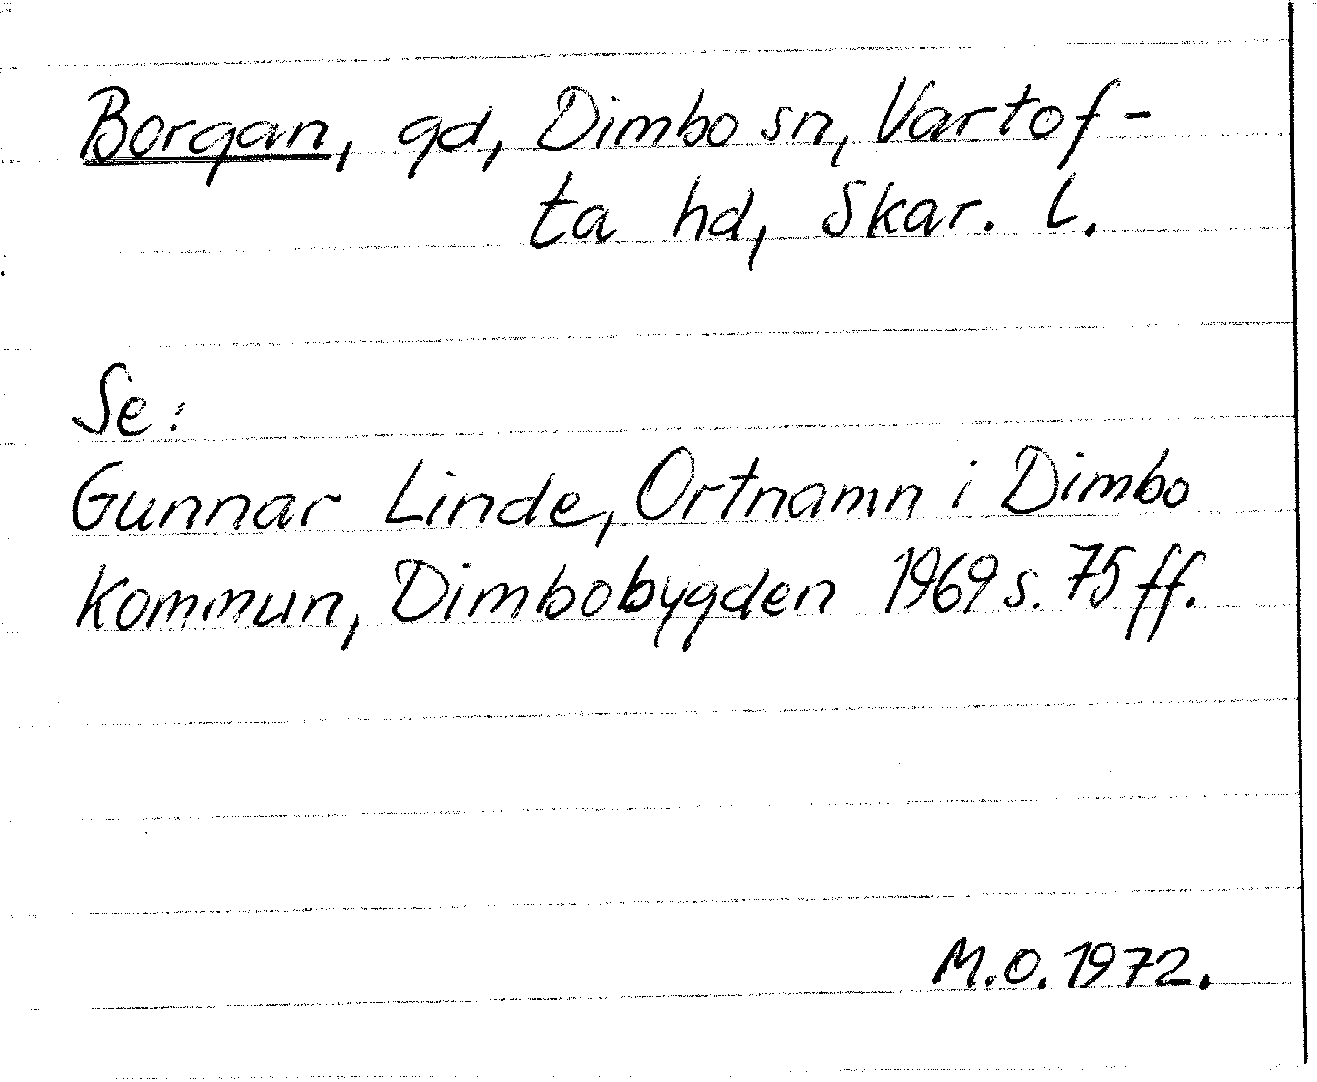 Borgan, gd, Dimbo sn, Vartof-
ta hd, Skar. l.
Se:
Gunnar Linde, Ortnamn i Dimbo
kommun, Dimbobygden 1969 s. 75 ff.
M.O. 1972.